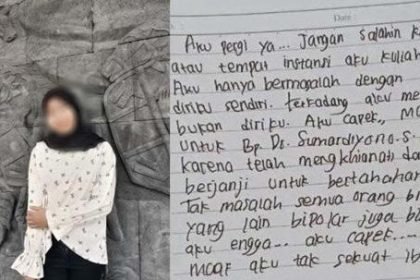 Date :
Aku pergi ya... Jangan salahin k
atau tempat instansi aku kuliah
Aku hanya bermasalah dengan
diriku sendiri. Terkadang aku me
bukan diriku. Aku capek,, Ma
untuk Bp. Ds. Sumardiyono. S
karena telah mengkhianati da
berjanji untuk bertahan
Tak masalah semua orang bi
yang lain bipolar juga bi
aku engga... aku capek....
maaf aku tak sekuat